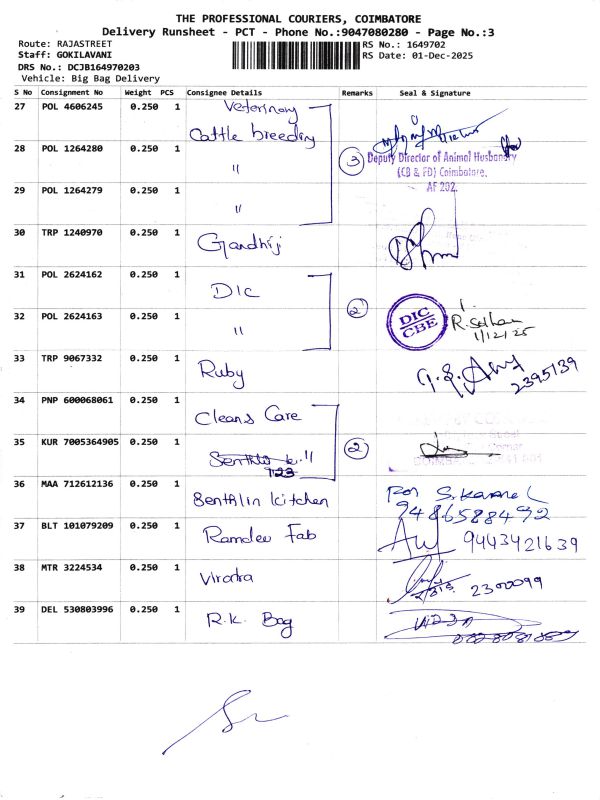 THE PROFESSIONAL COURIERS, COIMBATORE
Delivery Runsheet - PCT - Phone No.:9047080280 - Page No.:3
Route: RAJASTREET
RS No.: 1649702
Staff: GOKILAVANI
RS Date: 01-Dec-2025
DRS No.: DCJB164970203
Vehicle: Big Bag Delivery
S No Consignment No Weight PCS Consignee Details Remarks Seal & Signature
27 POL 4606245 0.250 1 Veterinary
Cattle breeding
28 POL 1264280 0.250 1 " 3 Deputy Director of Animal Husbandry
(CB & FD) Coimbatore.
29 POL 1264279 0.250 1 " AF 202
30 TRP 1240970 0.250 1 Gandhiji
31 POL 2624162 0.250 1 DIC 2 DIC
CBE
R. Sethan
1/12/25
32 POL 2624163 0.250 1 "
33 TRP 9067332 0.250 1 Ruby 2395139
34 PNP 600068061 0.250 1 Cleans Care
35 KUR 7005364905 0.250 1 " 2
36 MAA 712612136 0.250 1 Senthlin kitchen
9486588492
37 BLT 101079209 0.250 1 Ramdev Fab 9443421639
38 MTR 3224534 0.250 1 2300099
39 DEL 530803996 0.250 1 R.K. Bag